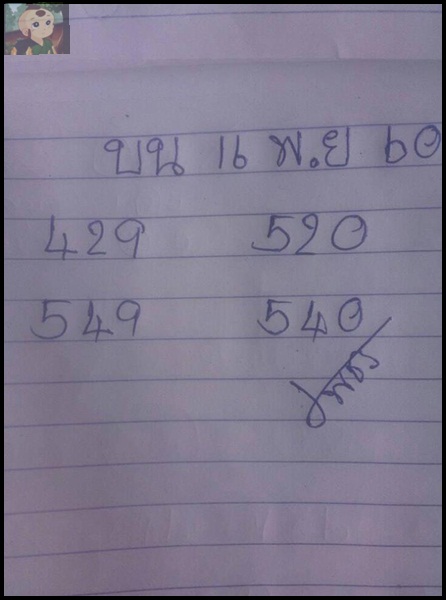 บน 16 พ.ย 60
429 520
549 540